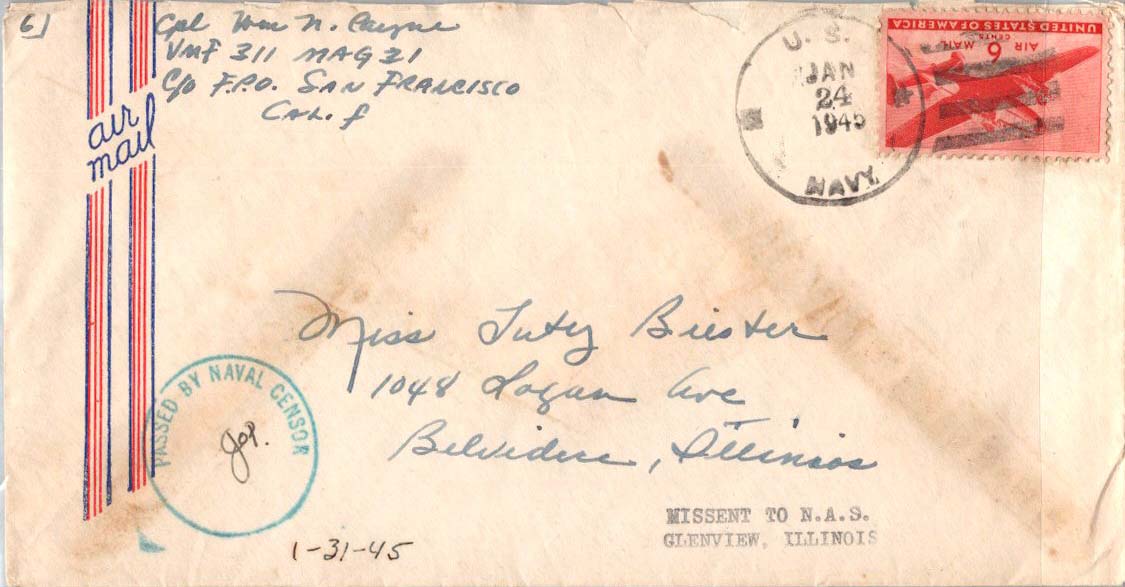 6]
Cpl Wm N. Payne
VMF 311 MAG 31
C/o F.P.O. San Francisco
Calif
air
mail
U. S.
JAN
24
1945
NAVY
UNITED STATES OF AMERICA
AIR MAIL
6
CENTS
Miss Biester
1048 Logan Ave
Belvidere, Illinois
PASSED BY NAVAL CENSOR
MISSENT TO N.A.S.
GLENVIEW, ILLINOIS
1-31-45